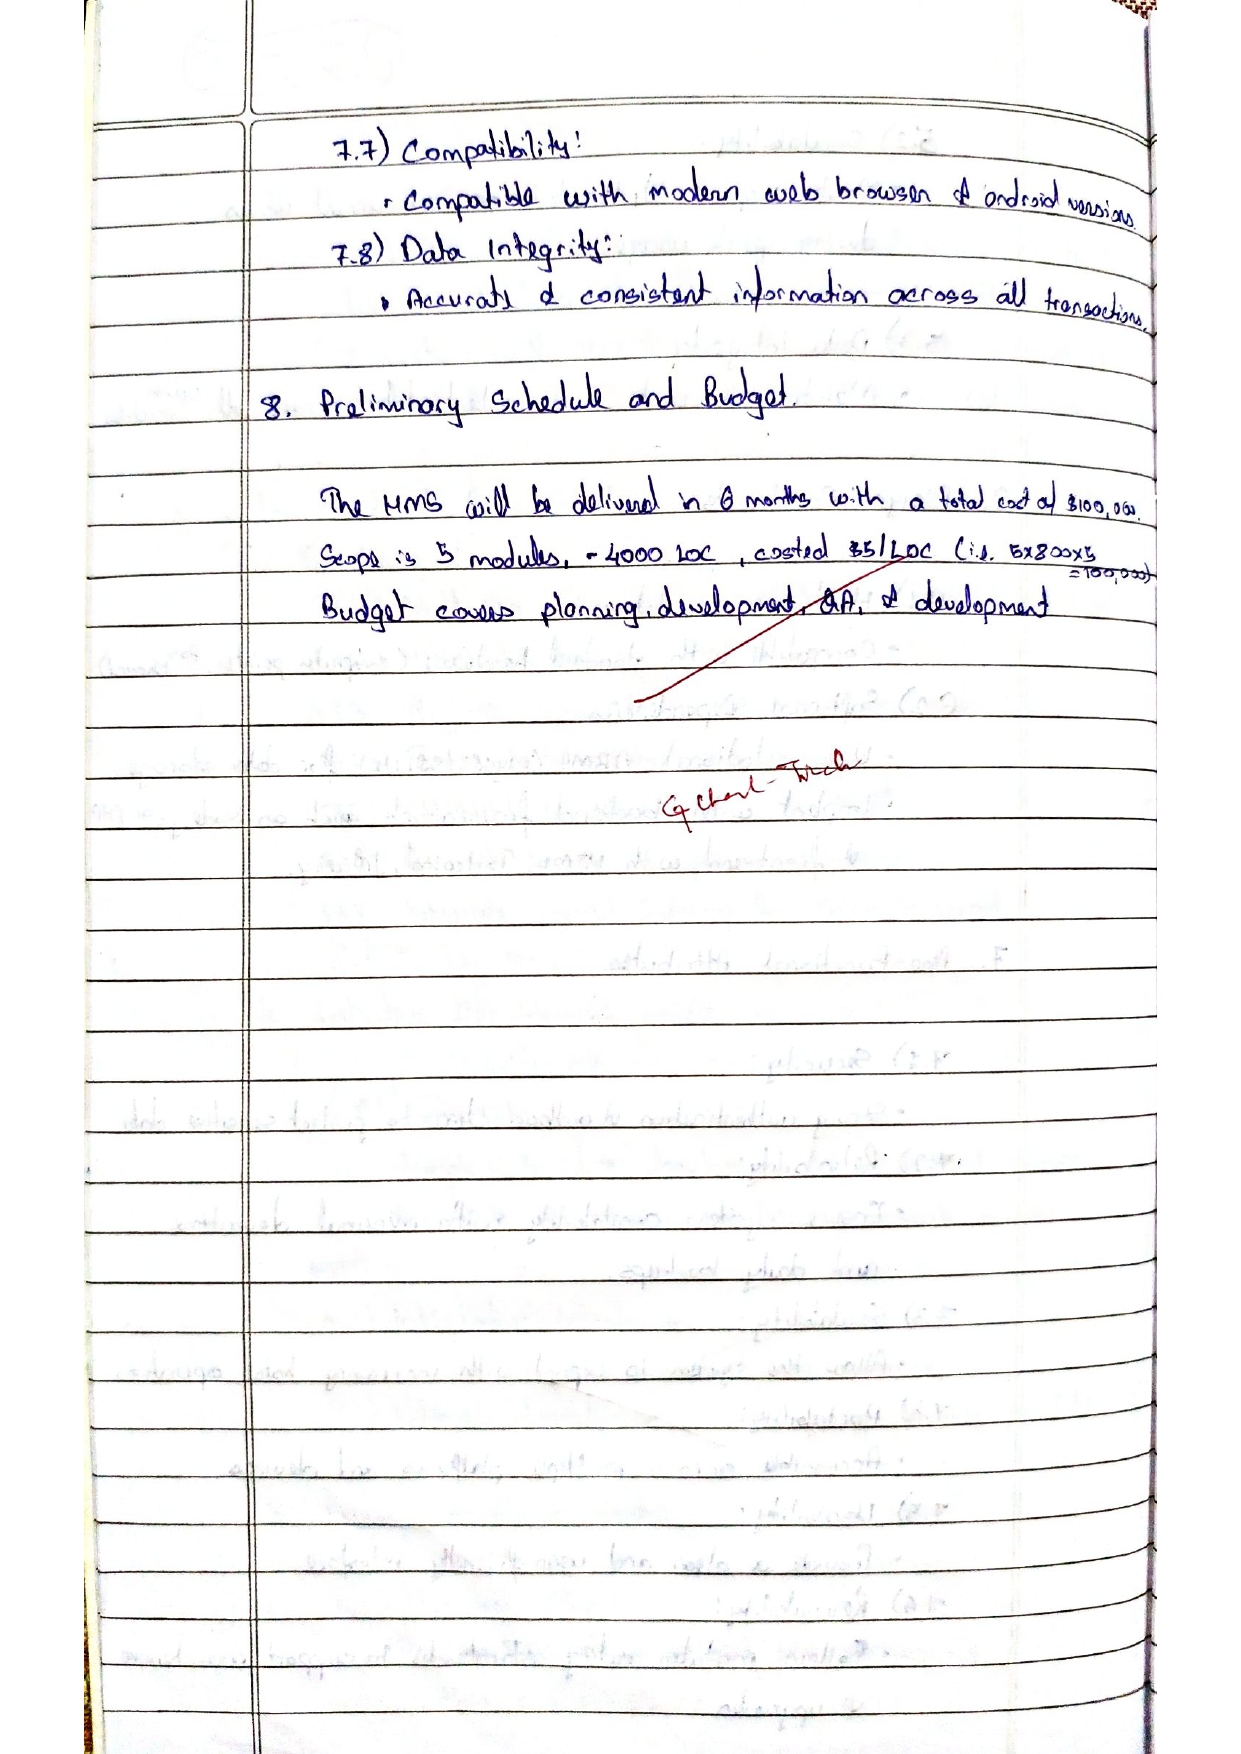 7.7) Compatibility:
• Compatible with modern web browser & android versions.
7.8) Data Integrity:
• Accurate & consistent information across all transactions.
8. Preliminary Schedule and Budget.
The HMS will be delivered in 6 months with a total cost of $100,000.
Scope is 5 modules, ~4000 LOC, costed $5/LOC (i.e. 5x800x5
=100,000)
Budget covers planning, development, QA, & development